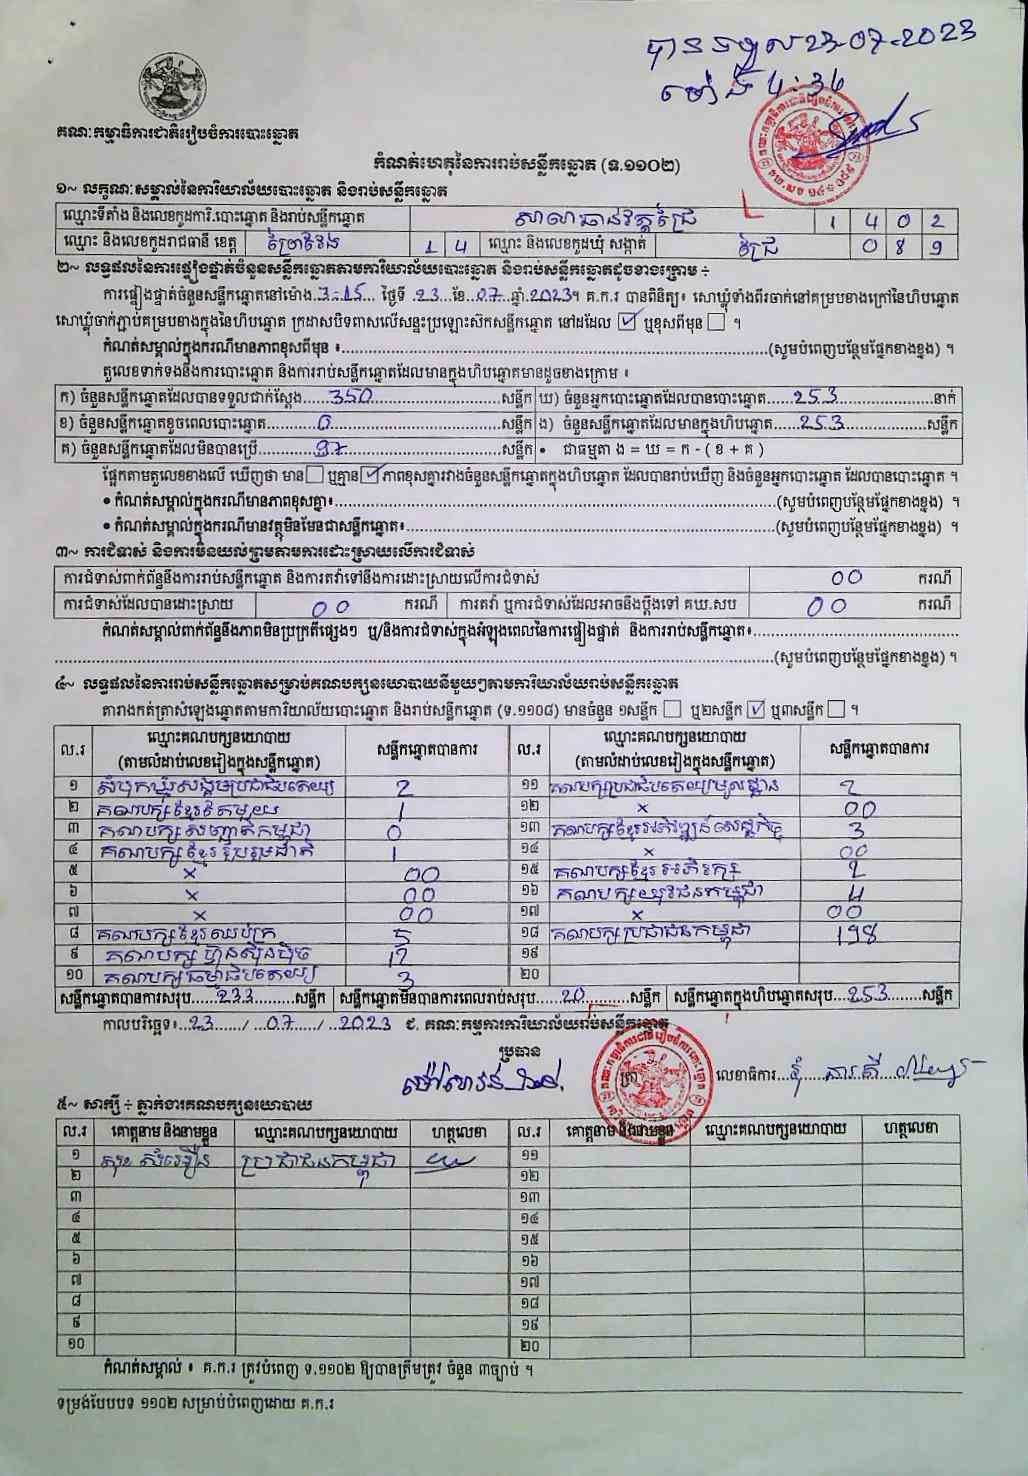 បានទទួល 23-07-2023
ម៉ោង 4:36
គណៈកម្មាធិការជាតិរៀបចំការបោះឆ្នោត
កំណត់ហេតុនៃការរាប់សន្លឹកឆ្នោត (ទ.១១០២)
១~ លក្ខណៈសម្គាល់នៃការិយាល័យបោះឆ្នោត និងរាប់សន្លឹកឆ្នោត
ឈ្មោះទីតាំង និងលេខកូដការិ.បោះឆ្នោត និងរាប់សន្លឹកឆ្នោត សាលាធានវត្តជ្រៃ 1 4 0 2
ឈ្មោះ និងលេខកូដរាជធានី ខេត្ត ព្រៃវែង 1 4 ឈ្មោះ និងលេខកូដឃុំ សង្កាត់ ជ្រៃ 0 8 9
២~ លទ្ធផលនៃការផ្ទៀងផ្ទាត់ចំនួនសន្លឹកឆ្នោតតាមការិយាល័យបោះឆ្នោត និងរាប់សន្លឹកឆ្នោតដូចខាងក្រោម ÷
ការផ្ទៀងផ្ទាត់ចំនួនសន្លឹកឆ្នោតនៅម៉ោង 3-15 ថ្ងៃទី 23 ខែ 07 ឆ្នាំ 2023។ គ.ក.រ បានពិនិត្យ៖ សោឃ្លុំទាំងពីរចាក់នៅគម្របខាងក្រៅនៃហិបឆ្នោត
សោឃ្លុំចាក់ភ្ជាប់គម្របខាងក្នុងនៃហិបឆ្នោត ក្រដាសបិទពាសលើសន្ទះប្រឡោះស៊កសន្លឹកឆ្នោត នៅដដែល ☑ ឬខុសពីមុន ☐ ។
កំណត់សម្គាល់ក្នុងករណីមានភាពខុសពីមុន ៖ (សូមបំពេញបន្ថែមផ្នែកខាងខ្នង) ។
តួលេខទាក់ទងនឹងការបោះឆ្នោត និងការរាប់សន្លឹកឆ្នោតដែលមានក្នុងហិបឆ្នោតមានដូចខាងក្រោម ៖
ក) ចំនួនសន្លឹកឆ្នោតដែលបានទទួលជាក់ស្តែង 350 សន្លឹក ឃ) ចំនួនអ្នកបោះឆ្នោតដែលបានបោះឆ្នោត 253 នាក់
ខ) ចំនួនសន្លឹកឆ្នោតខូចពេលបោះឆ្នោត 0 សន្លឹក ង) ចំនួនសន្លឹកឆ្នោតដែលមានក្នុងហិបឆ្នោត 253 សន្លឹក
គ) ចំនួនសន្លឹកឆ្នោតដែលមិនបានប្រើ 97 សន្លឹក • ជាធម្មតា ង = ឃ = ក - ( ខ + គ )
ផ្អែកតាមតួលេខខាងលើ ឃើញថា មាន ☐ ឬគ្មាន ☑ ភាពខុសគ្នារវាងចំនួនសន្លឹកឆ្នោតក្នុងហិបឆ្នោត ដែលបានរាប់ឃើញ និងចំនួនអ្នកបោះឆ្នោត ដែលបានបោះឆ្នោត ។
• កំណត់សម្គាល់ក្នុងករណីមានភាពខុសគ្នា៖ (សូមបំពេញបន្ថែមផ្នែកខាងខ្នង) ។
• កំណត់សម្គាល់ក្នុងករណីមានវត្ថុមិនមែនជាសន្លឹកឆ្នោត៖ (សូមបំពេញបន្ថែមផ្នែកខាងខ្នង) ។
៣~ ការជំទាស់ និងការមិនយល់ព្រមតាមការដោះស្រាយលើការជំទាស់
ការជំទាស់ពាក់ព័ន្ធនឹងការរាប់សន្លឹកឆ្នោត និងការតវ៉ាទៅនឹងការដោះស្រាយលើការជំទាស់ 00 ករណី
ការជំទាស់ដែលបានដោះស្រាយ 00 ករណី ការតវ៉ា ឬការជំទាស់ដែលអាចនឹងប្តឹងទៅ គឃ.សប 00 ករណី
កំណត់សម្គាល់ពាក់ព័ន្ធនឹងភាពមិនប្រក្រតីផ្សេងៗ ឬ/និងការជំទាស់ក្នុងអំឡុងពេលនៃការផ្ទៀងផ្ទាត់ និងការរាប់សន្លឹកឆ្នោត៖
(សូមបំពេញបន្ថែមផ្នែកខាងខ្នង) ។
៤~ លទ្ធផលនៃការរាប់សន្លឹកឆ្នោតសម្រាប់គណបក្សនយោបាយនីមួយៗតាមការិយាល័យរាប់សន្លឹកឆ្នោត
តារាងកត់ត្រាសំឡេងឆ្នោតតាមការិយាល័យបោះឆ្នោត និងរាប់សន្លឹកឆ្នោត (ទ.១១០៨) មានចំនួន ១សន្លឹក ☐ ឬ២សន្លឹក ☑ ឬ៣សន្លឹក ☐ ។
ល.រ ឈ្មោះគណបក្សនយោបាយ (តាមលំដាប់លេខរៀងក្នុងសន្លឹកឆ្នោត) សន្លឹកឆ្នោតបានការ ល.រ ឈ្មោះគណបក្សនយោបាយ (តាមលំដាប់លេខរៀងក្នុងសន្លឹកឆ្នោត) សន្លឹកឆ្នោតបានការ
១ សំបុកឃ្មុំសង្គមប្រជាធិបតេយ្យ 2 ១១ គណបក្សប្រជាធិបតេយ្យមូលដ្ឋាន 2
២ គណបក្សខ្មែរតែមួយ 1 ១២ × 00
៣ គណបក្សសញ្ជាតិកម្ពុជា 0 ១៣ គណបក្សខ្មែរអភិវឌ្ឍន៍សេដ្ឋកិច្ច 3
៤ គណបក្សខ្មែររួបរួមជាតិ 1 ១៤ × 00
៥ × 00 ១៥ គណបក្សខ្មែរអភិរក្ស 2
៦ × 00 ១៦ គណបក្សយុវជនកម្ពុជា 4
៧ × 00 ១៧ × 00
៨ គណបក្សខ្មែរឈប់ក្រ 5 ១៨ គណបក្សប្រជាជនកម្ពុជា 198
៩ គណបក្សហ៊្វុនស៊ិនប៉ិច 12 ១៩
១០ គណបក្សធម្មាធិបតេយ្យ 3 ២០
សន្លឹកឆ្នោតបានការសរុប 233 សន្លឹក សន្លឹកឆ្នោតមិនបានការពេលរាប់សរុប 20 សន្លឹក សន្លឹកឆ្នោតក្នុងហិបឆ្នោតសរុប 253 សន្លឹក
កាលបរិច្ឆេទ៖ 23 / 07 / 2023 ជ. គណៈកម្មការការិយាល័យរាប់សន្លឹកឆ្នោត
ប្រធាន
ត្រា លេខាធិការ
៥~ សាក្សី ÷ ភ្នាក់ងារគណបក្សនយោបាយ
ល.រ គោត្តនាម និងនាមខ្លួន ឈ្មោះគណបក្សនយោបាយ ហត្ថលេខា ល.រ គោត្តនាម និងនាមខ្លួន ឈ្មោះគណបក្សនយោបាយ ហត្ថលេខា
១ ប្រជាជនកម្ពុជា ១១
២ ១២
៣ ១៣
៤ ១៤
៥ ១៥
៦ ១៦
៧ ១៧
៨ ១៨
៩ ១៩
១០ ២០
កំណត់សម្គាល់ ៖ គ.ក.រ ត្រូវបំពេញ ទ.១១០២ ឱ្យបានត្រឹមត្រូវ ចំនួន ៣ច្បាប់ ។
ទម្រង់បែបបទ ១១០២ សម្រាប់បំពេញដោយ គ.ក.រ